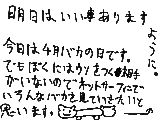 明日はいい事ありますように。
今日は4月バカの日です。
でもぼくにはウソをつく相手
がいないのでネットサーフィンで
いろんなバカを見ていきたいと
思います。